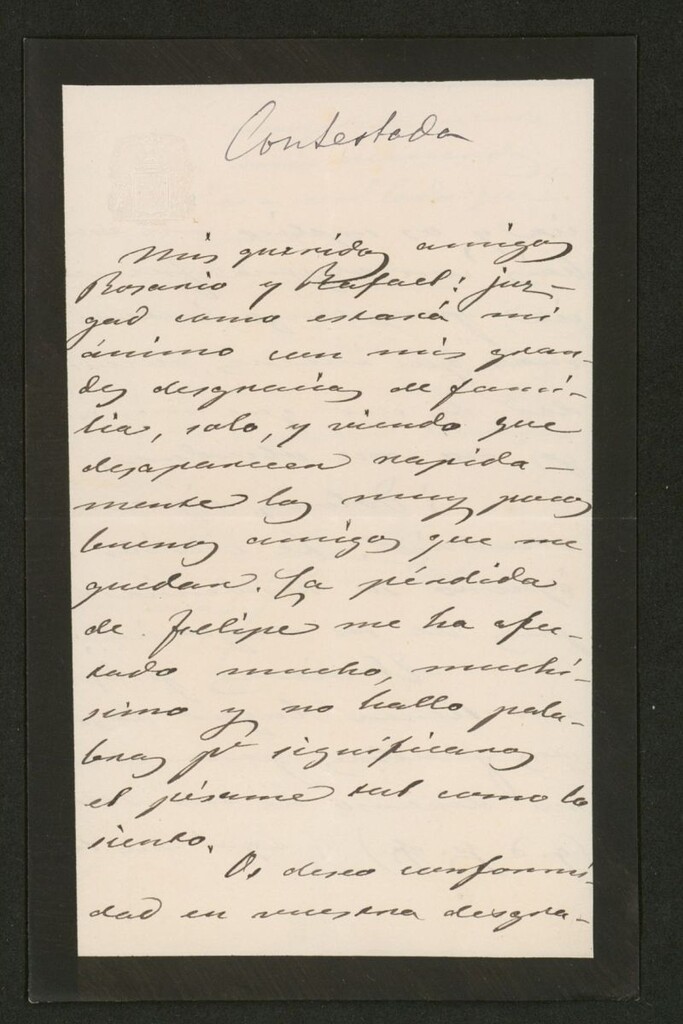 Contestada
Mis queridos amigos
Rosario y Rafael: juz-
gad como estará mi
ánimo con mis gran-
des desgracias de fami-
lia, solo, y viendo que
desaparecen rapida-
mente los muy pocos
buenos amigos que me
quedan. La pérdida
de Felipe me ha afec-
tado mucho, muchí-
simo y no hallo pala-
bras pª significaros
el pésame tal como lo
siento.
Os deseo conformi-
dad en vuestra desgra-